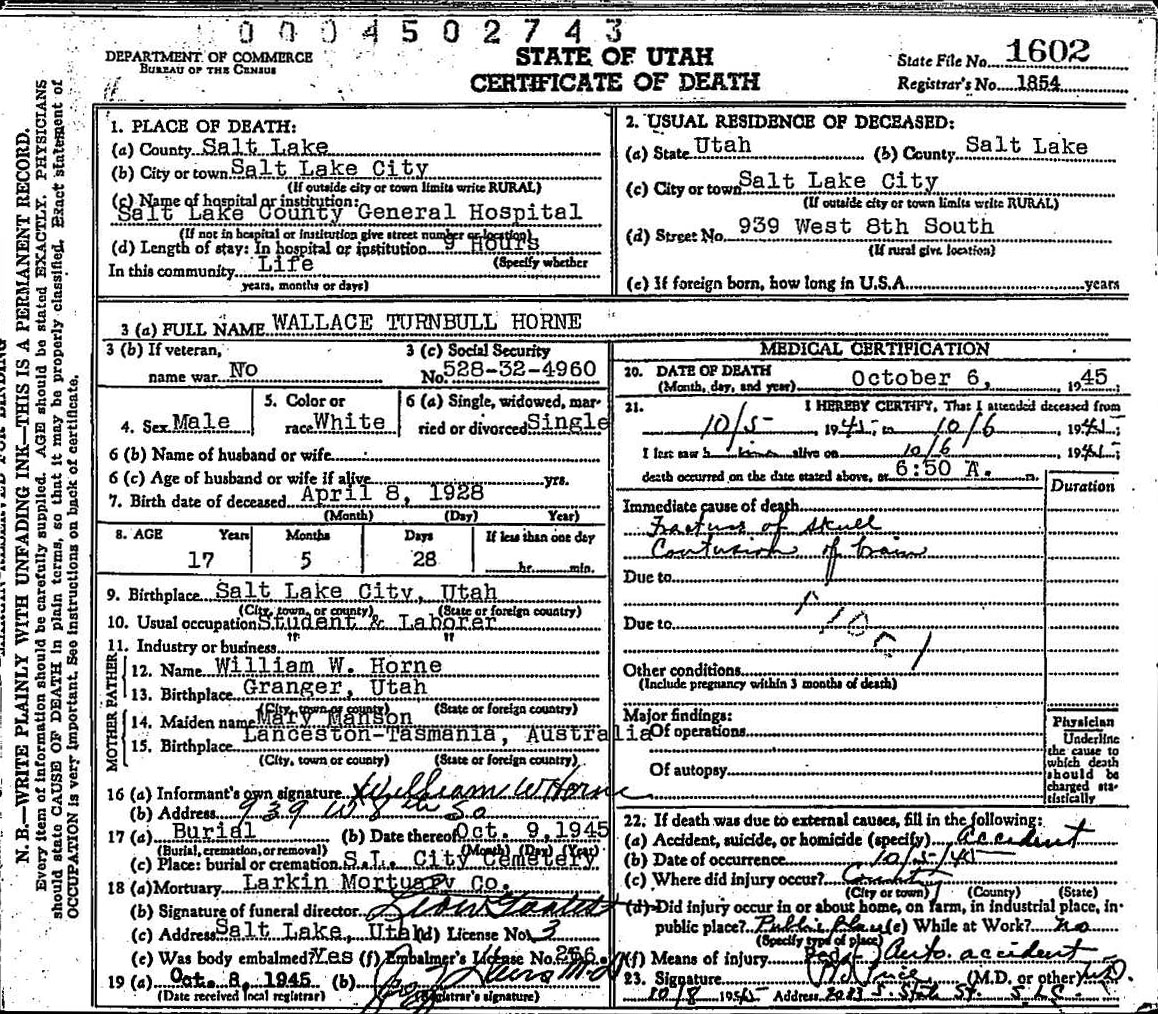 0004502743
DEPARTMENT OF COMMERCE
BUREAU OF THE CENSUS
STATE OF UTAH
CERTIFICATE OF DEATH
State File No. 1602
Registrar's No. 1854
N. B.—WRITE PLAINLY WITH UNFADING INK—THIS IS A PERMANENT RECORD.
Every item of information should be carefully supplied. AGE should be stated EXACTLY. PHYSICIANS
should state CAUSE OF DEATH in plain terms, so that it may be properly classified. Exact statement of
OCCUPATION is very important. See instructions on back of certificate.
1. PLACE OF DEATH:
(a) County Salt Lake
(b) City or town Salt Lake City
(If outside city or town limits write RURAL)
(c) Name of hospital or institution:
Salt Lake County General Hospital
(If not in hospital or institution give street number or location)
(d) Length of stay: In hospital or institution 9 Hours
(Specify whether
In this community Life
years, months or days)
2. USUAL RESIDENCE OF DECEASED:
(a) State Utah (b) County Salt Lake
(c) City or town Salt Lake City
(If outside city or town limits write RURAL)
(d) Street No. 939 West 8th South
(If rural give location)
(e) If foreign born, how long in U.S.A. years
3 (a) FULL NAME WALLACE TURNBULL HORNE
3 (b) If veteran,
name war No
3 (c) Social Security
No. 528-32-4960
4. Sex Male
5. Color or
race White
6 (a) Single, widowed, mar-
ried or divorced Single
6 (b) Name of husband or wife
6 (c) Age of husband or wife if alive yrs.
7. Birth date of deceased April 8, 1928
(Month) (Day) Year)
8. AGE Years Months Days If less than one day
17 5 28 hr. min.
9. Birthplace Salt Lake City, Utah
(City, town, or county) (State or foreign country)
10. Usual occupation Student & Laborer
11. Industry or business " "
FATHER
12. Name William W. Horne
13. Birthplace Granger, Utah
(City, town or county) (State or foreign country)
MOTHER
14. Maiden name Mary Manson
15. Birthplace Lanceston-Tasmania, Australia
(City, town or county) (State or foreign country)
16 (a) Informant's own signature William W Horne
(b) Address 939 W 8th So
17 (a) Burial (b) Date thereof Oct. 9, 1945
(Burial, cremation, or removal) (Month) (Day) (Year)
(c) Place: burial or cremation S.L. City Cemetery
18 (a) Mortuary Larkin Mortuary Co.
(b) Signature of funeral director
(c) Address Salt Lake, Utah (d) License No. 3
(e) Was body embalmed? Yes (f) Embalmer's License No. 266
19 (a) Oct. 8, 1945 (b)
(Date received local registrar) (Registrar's signature)
MEDICAL CERTIFICATION
20. DATE OF DEATH
(Month, day, and year) October 6, 1945
21. I HEREBY CERTIFY, That I attended deceased from
10/5, 1945, to 10/6, 1945;
I last saw him alive on 10/6, 1945;
death occurred on the date stated above, at 6:50 A. m.
Duration
Immediate cause of death
Fracture of skull
Contusion of brain
Due to
Due to
Other conditions
(Include pregnancy within 3 months of death)
Major findings:
Of operations
Of autopsy
Physician
Underline
the cause to
which death
should be
charged sta-
tistically
22. If death was due to external causes, fill in the following:
(a) Accident, suicide, or homicide (specify) Accident
(b) Date of occurrence 10/5/45
(c) Where did injury occur? County
(City or town) (County) (State)
(d) Did injury occur in or about home, on farm, in industrial place, in
public place? Public place (e) While at Work? no
(Specify type of place)
(f) Means of injury Auto. accident
23. Signature Price (M.D. or other) M.D.
10/8 1945 Address 2023 S. State St. S.L.C.